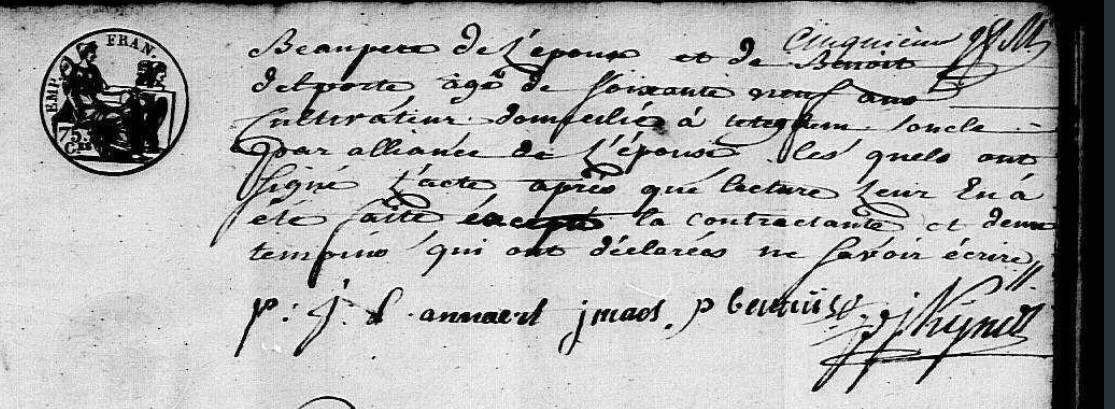 EMP. FRAN.
75
Cinquième
Beaupere de l'épouse et de Benoit
delporte agé de soixante neuf ans
Cultivateur domicilié à teteghem loncle
par alliance de l'épouse les quels ont
signé l'acte après que lecture leur En à
été faite excepté la contractante et deux
temoins qui ont déclarées ne savoir écrire
p. j. annaert j maes p